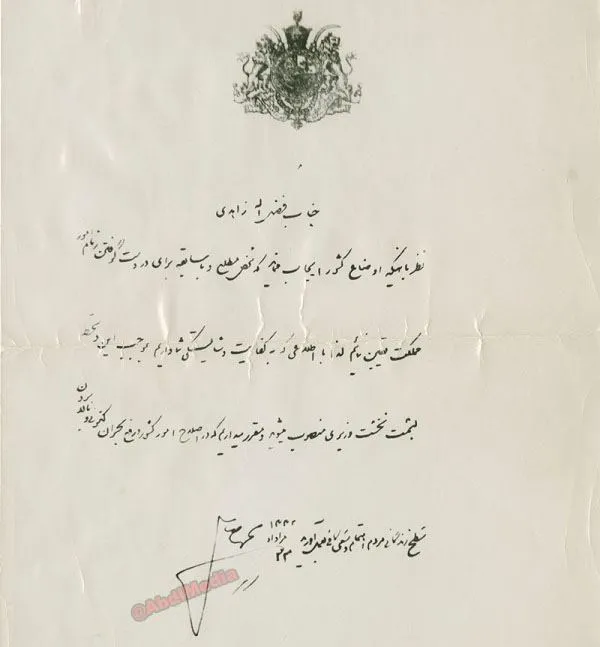 جناب فضل اله زاهدی
نظر باینکه اوضاع کشور ایجاب مینماید که شخص مطلع و با سابقه برای در دست گرفتن زمام امور
مملکت تعیین نمائیم لذا با اطلاعی که به کفایت و شایستگی شما داریم بموجب این دستخط
بسمت نخست وزیری منصوب میشوید و مقرر میداریم که در اصلاح امور کشور و رفع بحران کنونی و بالا بردن
سطح زندگانی مردم اهتمام و سعی کافی بعمل آورید
۲۲ مرداد ۱۳۳۲
@AbdiMedia